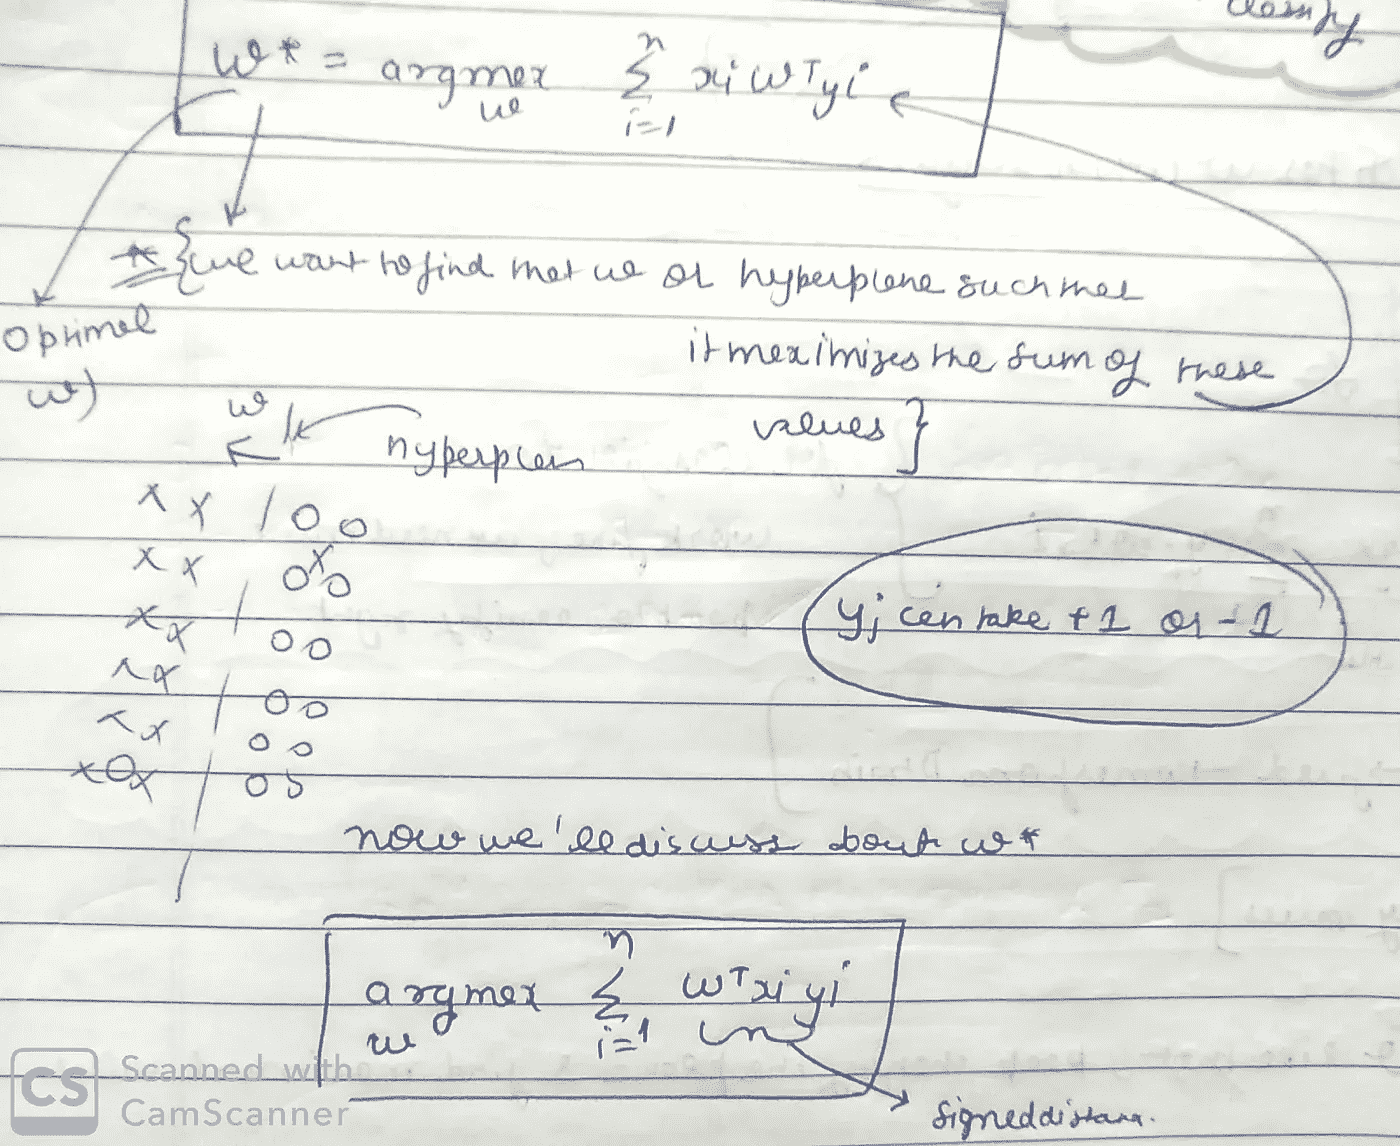 classify
w* = argmax Σ xi wᵀyi
w i=1 n
* { we want to find that w or hyperplane such that
optimal it maximizes the sum of these
w) values }
w hyperplan
yi can take +1 or -1
now we'll discuss about w*
argmax Σ wᵀxi yi
w i=1 n
signed distanc.
CS Scanned with
CamScanner